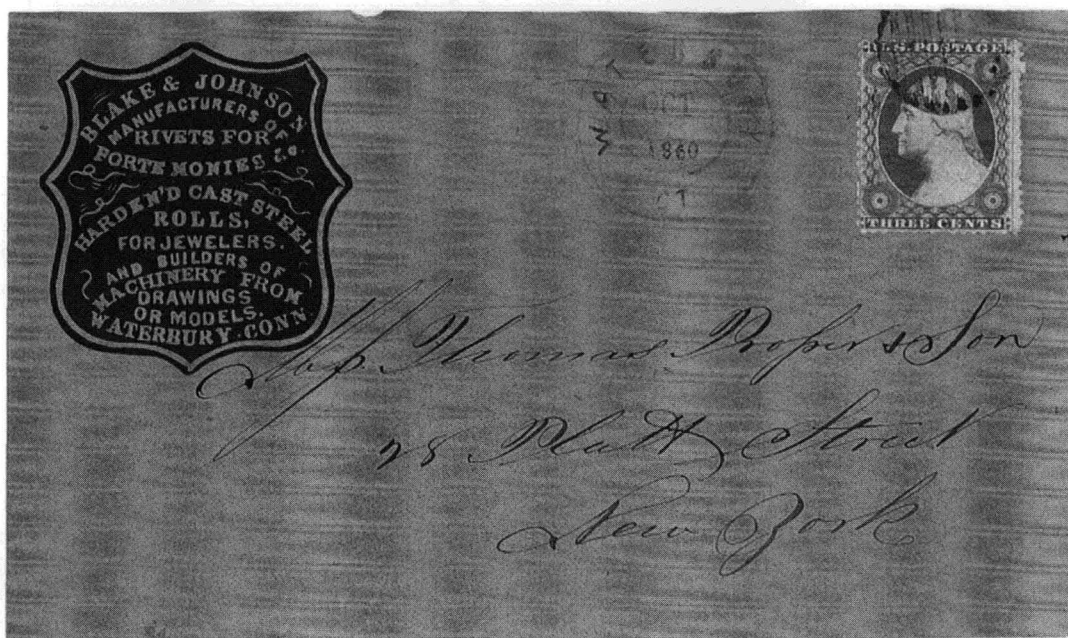 BLAKE & JOHNSON
MANUFACTURERS OF
RIVETS FOR
PORTE MONIES &c.
HARDEN'D CAST STEEL
ROLLS,
FOR JEWELERS.
AND BUILDERS OF
MACHINERY FROM
DRAWINGS
OR MODELS.
WATERBURY. CONN.
OCT
1860
U.S. POSTAGE
THREE CENTS
Thomas Roper & Son
28 Platt Street
New York